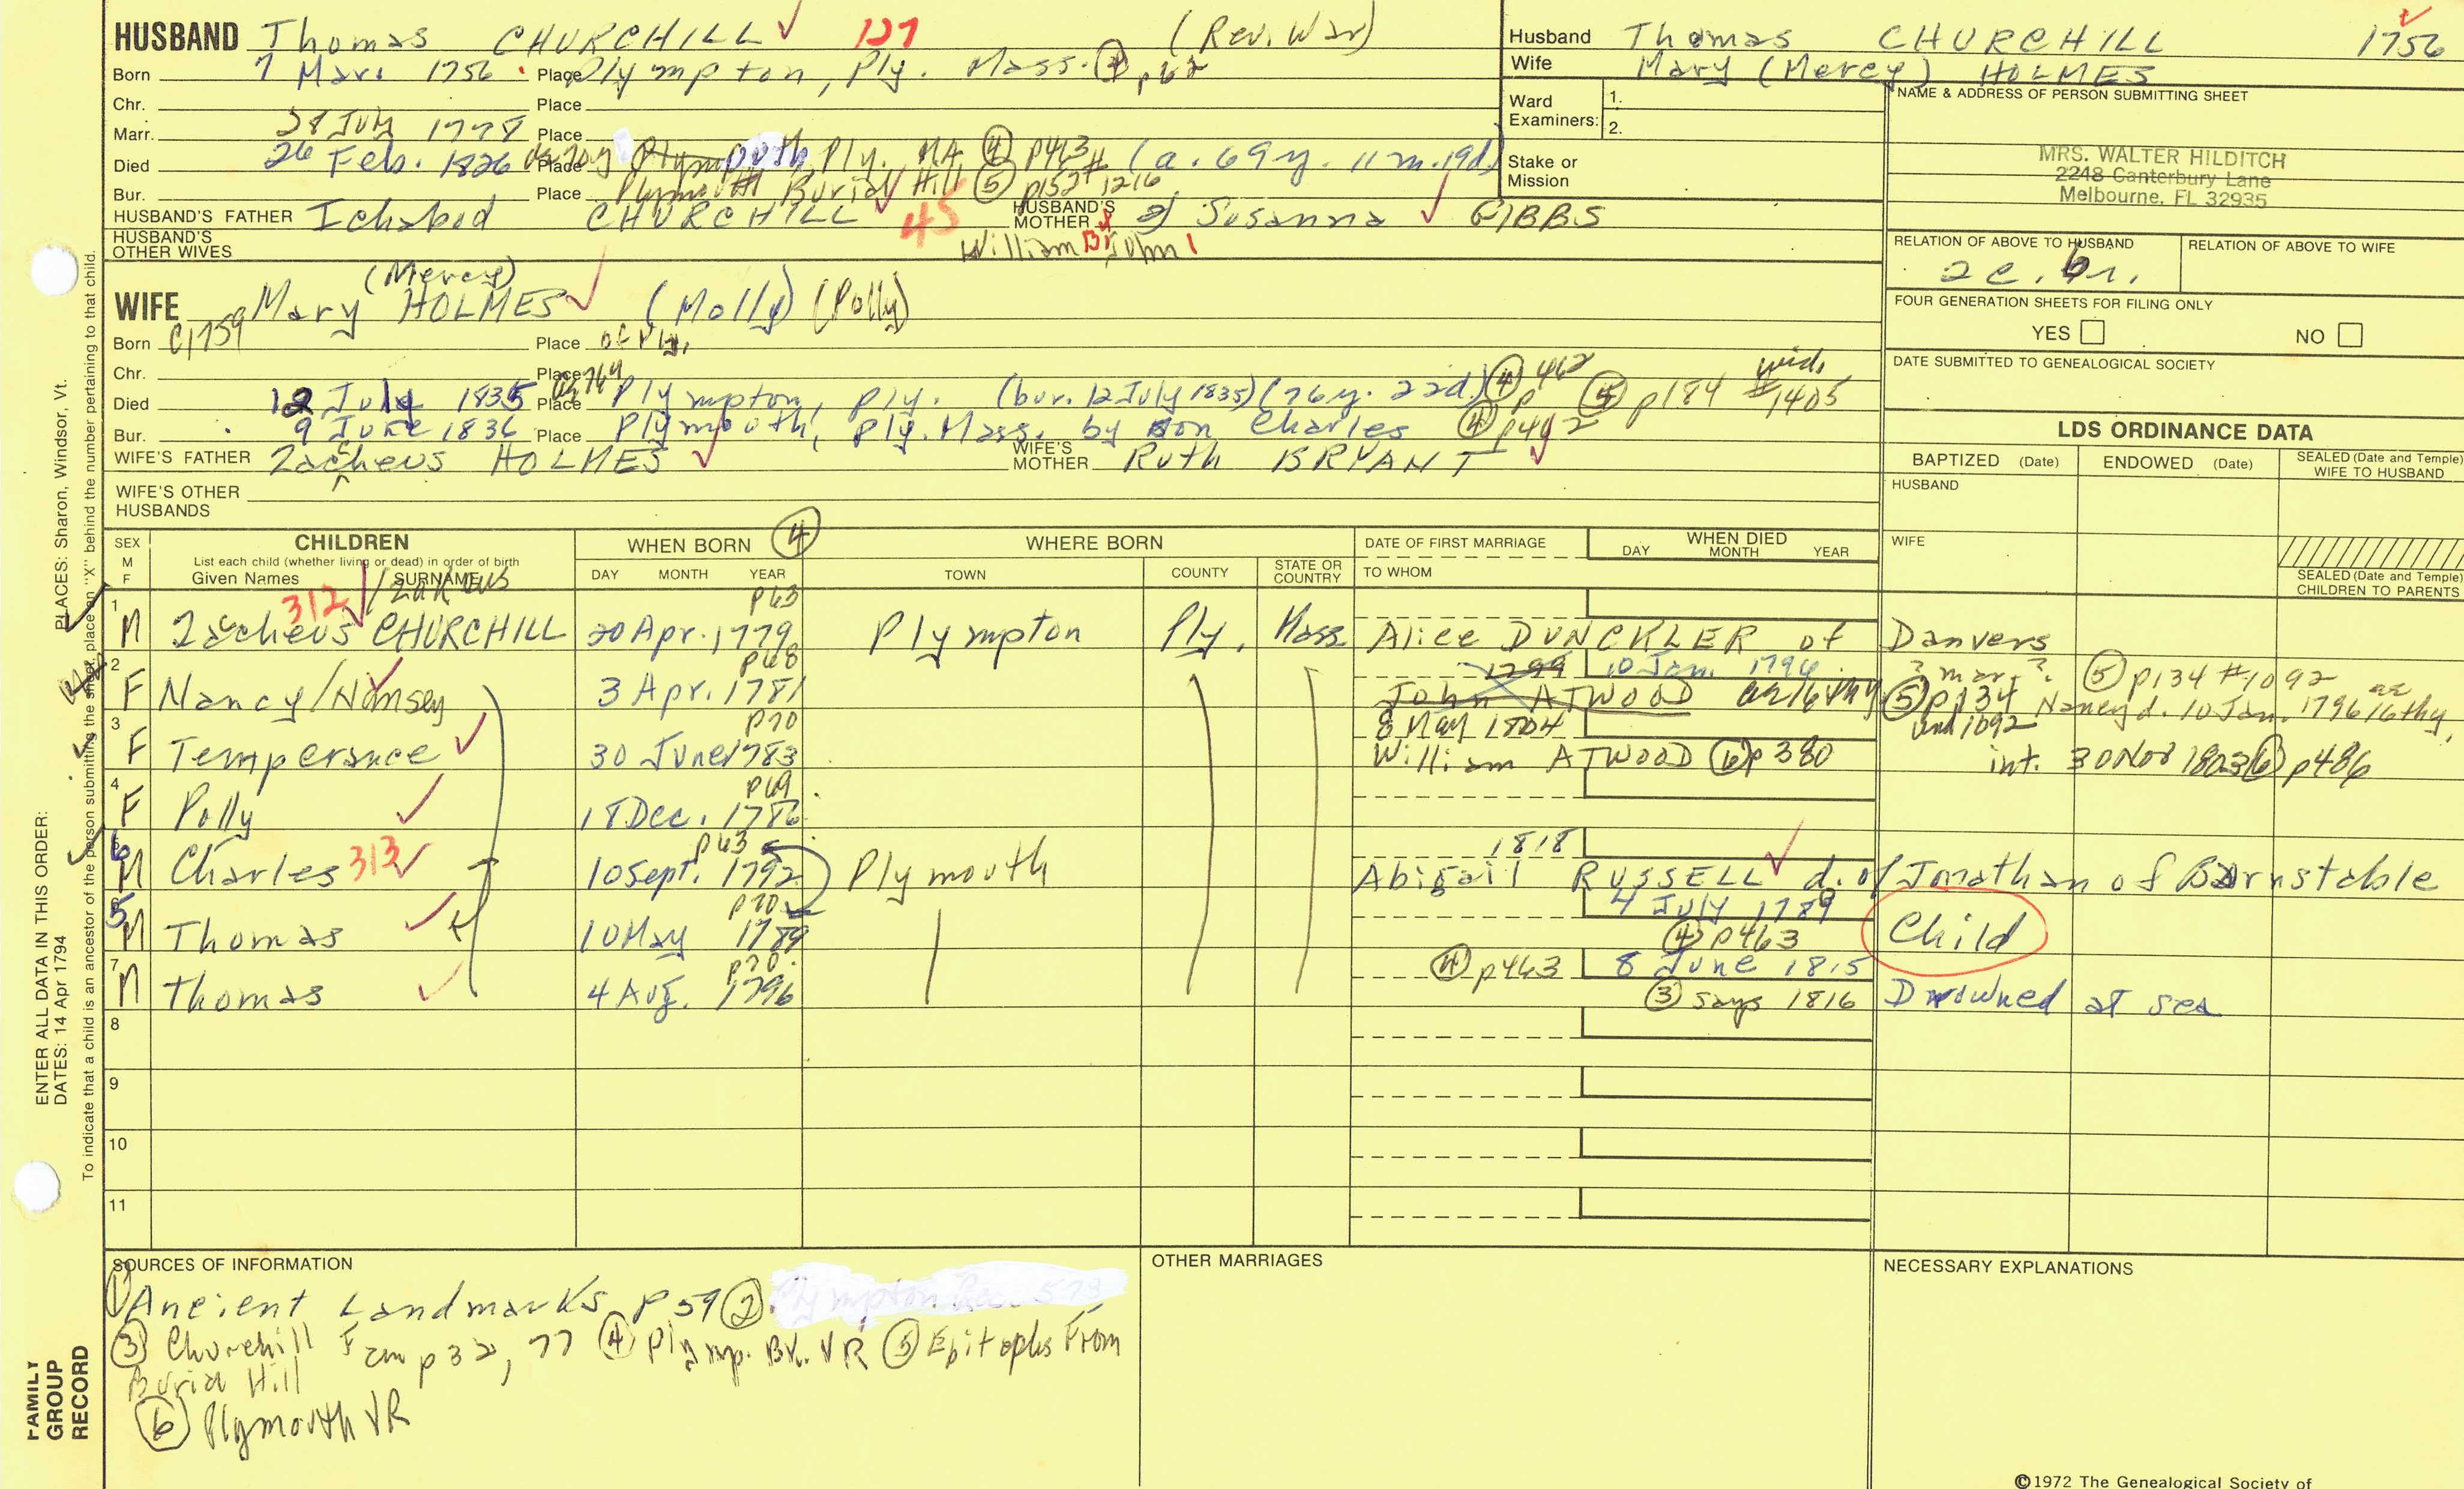 HUSBAND Thomas CHURCHILL 127 (Rev. War)
Born 7 Mar. 1756 Place Plympton, Ply. Mass. p62
Chr. Place
Marr. 28 July 1778 Place
Died 26 Feb. 1826 Place Plymouth Ply. MA ④ p463 (a. 69y. 11m. 19d)
Bur. Place Plymouth Burial Hill ⑤ p152 #1216
HUSBAND'S FATHER Ichabod CHURCHILL 45 HUSBAND'S MOTHER Susanna GIBBS
HUSBAND'S OTHER WIVES William John
WIFE Mary (Mercy) HOLMES (Molly) (Polly)
Born C1759 Place of Ply.
Chr. Place
Died 12 July 1835 Place Plympton, Ply. (bur. 12 July 1835) (76y. 22d.) ④ p 462 ⑤ p184 #1405 wid.
Bur. 9 June 1836 Place Plymouth, Ply. Mass. by son Charles ④ p462
WIFE'S FATHER Zacheus HOLMES WIFE'S MOTHER Ruth BRYANT
WIFE'S OTHER HUSBANDS
Husband Thomas CHURCHILL 1756
Wife Mary (Mercy) HOLMES
Ward Examiners: 1.
2.
Stake or Mission
NAME & ADDRESS OF PERSON SUBMITTING SHEET
MRS. WALTER HILDITCH
2248 Canterbury Lane
Melbourne, FL 32935
RELATION OF ABOVE TO HUSBAND RELATION OF ABOVE TO WIFE
2c. br.
FOUR GENERATION SHEETS FOR FILING ONLY
YES NO
DATE SUBMITTED TO GENEALOGICAL SOCIETY
LDS ORDINANCE DATA
BAPTIZED (Date) ENDOWED (Date) SEALED (Date and Temple) WIFE TO HUSBAND
HUSBAND
WIFE
SEALED (Date and Temple) CHILDREN TO PARENTS
SEX M F CHILDREN WHEN BORN ④ WHERE BORN DATE OF FIRST MARRIAGE WHEN DIED
List each child (whether living or dead) in order of birth
Given Names SURNAME DAY MONTH YEAR TOWN COUNTY STATE OR COUNTRY TO WHOM DAY MONTH YEAR
312 p63
1 M Zacheus CHURCHILL 20 Apr. 1779 Plympton Ply. Mass Alice DUNCKLER of Danvers
p68 1799 10 Jan. 1796 ? mar. ? ⑤ p134 #1092
2 F Nancy/Hansey 3 Apr. 1781 John ATWOOD ⑤ p134 Nancy d. 10 Jan. 1796 ae 16thy.
p70 8 May 1804 1092
3 F Temperance 30 June 1783 William ATWOOD ⑥ p380 int. 30 Nov 1803 ⑥ p486
p69
4 F Polly 18 Dec. 1786
p63 1818
6 M Charles 313 10 Sept. 1792 Plymouth Abigail RUSSELL d. of Jonathan of Barnstable
p70 4 July 1789
5 M Thomas 10 May 1789 ④ p463 Child
p70. ④ p463 8 June 1815
7 M Thomas 4 Aug. 1796 ③ says 1816 Drowned at sea
8
9
10
11
SOURCES OF INFORMATION
① Ancient Landmarks p 59 ②
③ Churchill Fam p 32, 77 ④ Plymp. Bk. VR ⑤ Epitaphs From
Burial Hill
⑥ Plymouth VR
OTHER MARRIAGES
NECESSARY EXPLANATIONS
©1972 The Genealogical Society of
ENTER ALL DATA IN THIS ORDER:
DATES: 14 Apr 1794 PLACES: Sharon, Windsor, Vt.
To indicate that a child is an ancestor of the person submitting the sheet, place an "X" behind the number pertaining to that child.
FAMILY
GROUP
RECORD